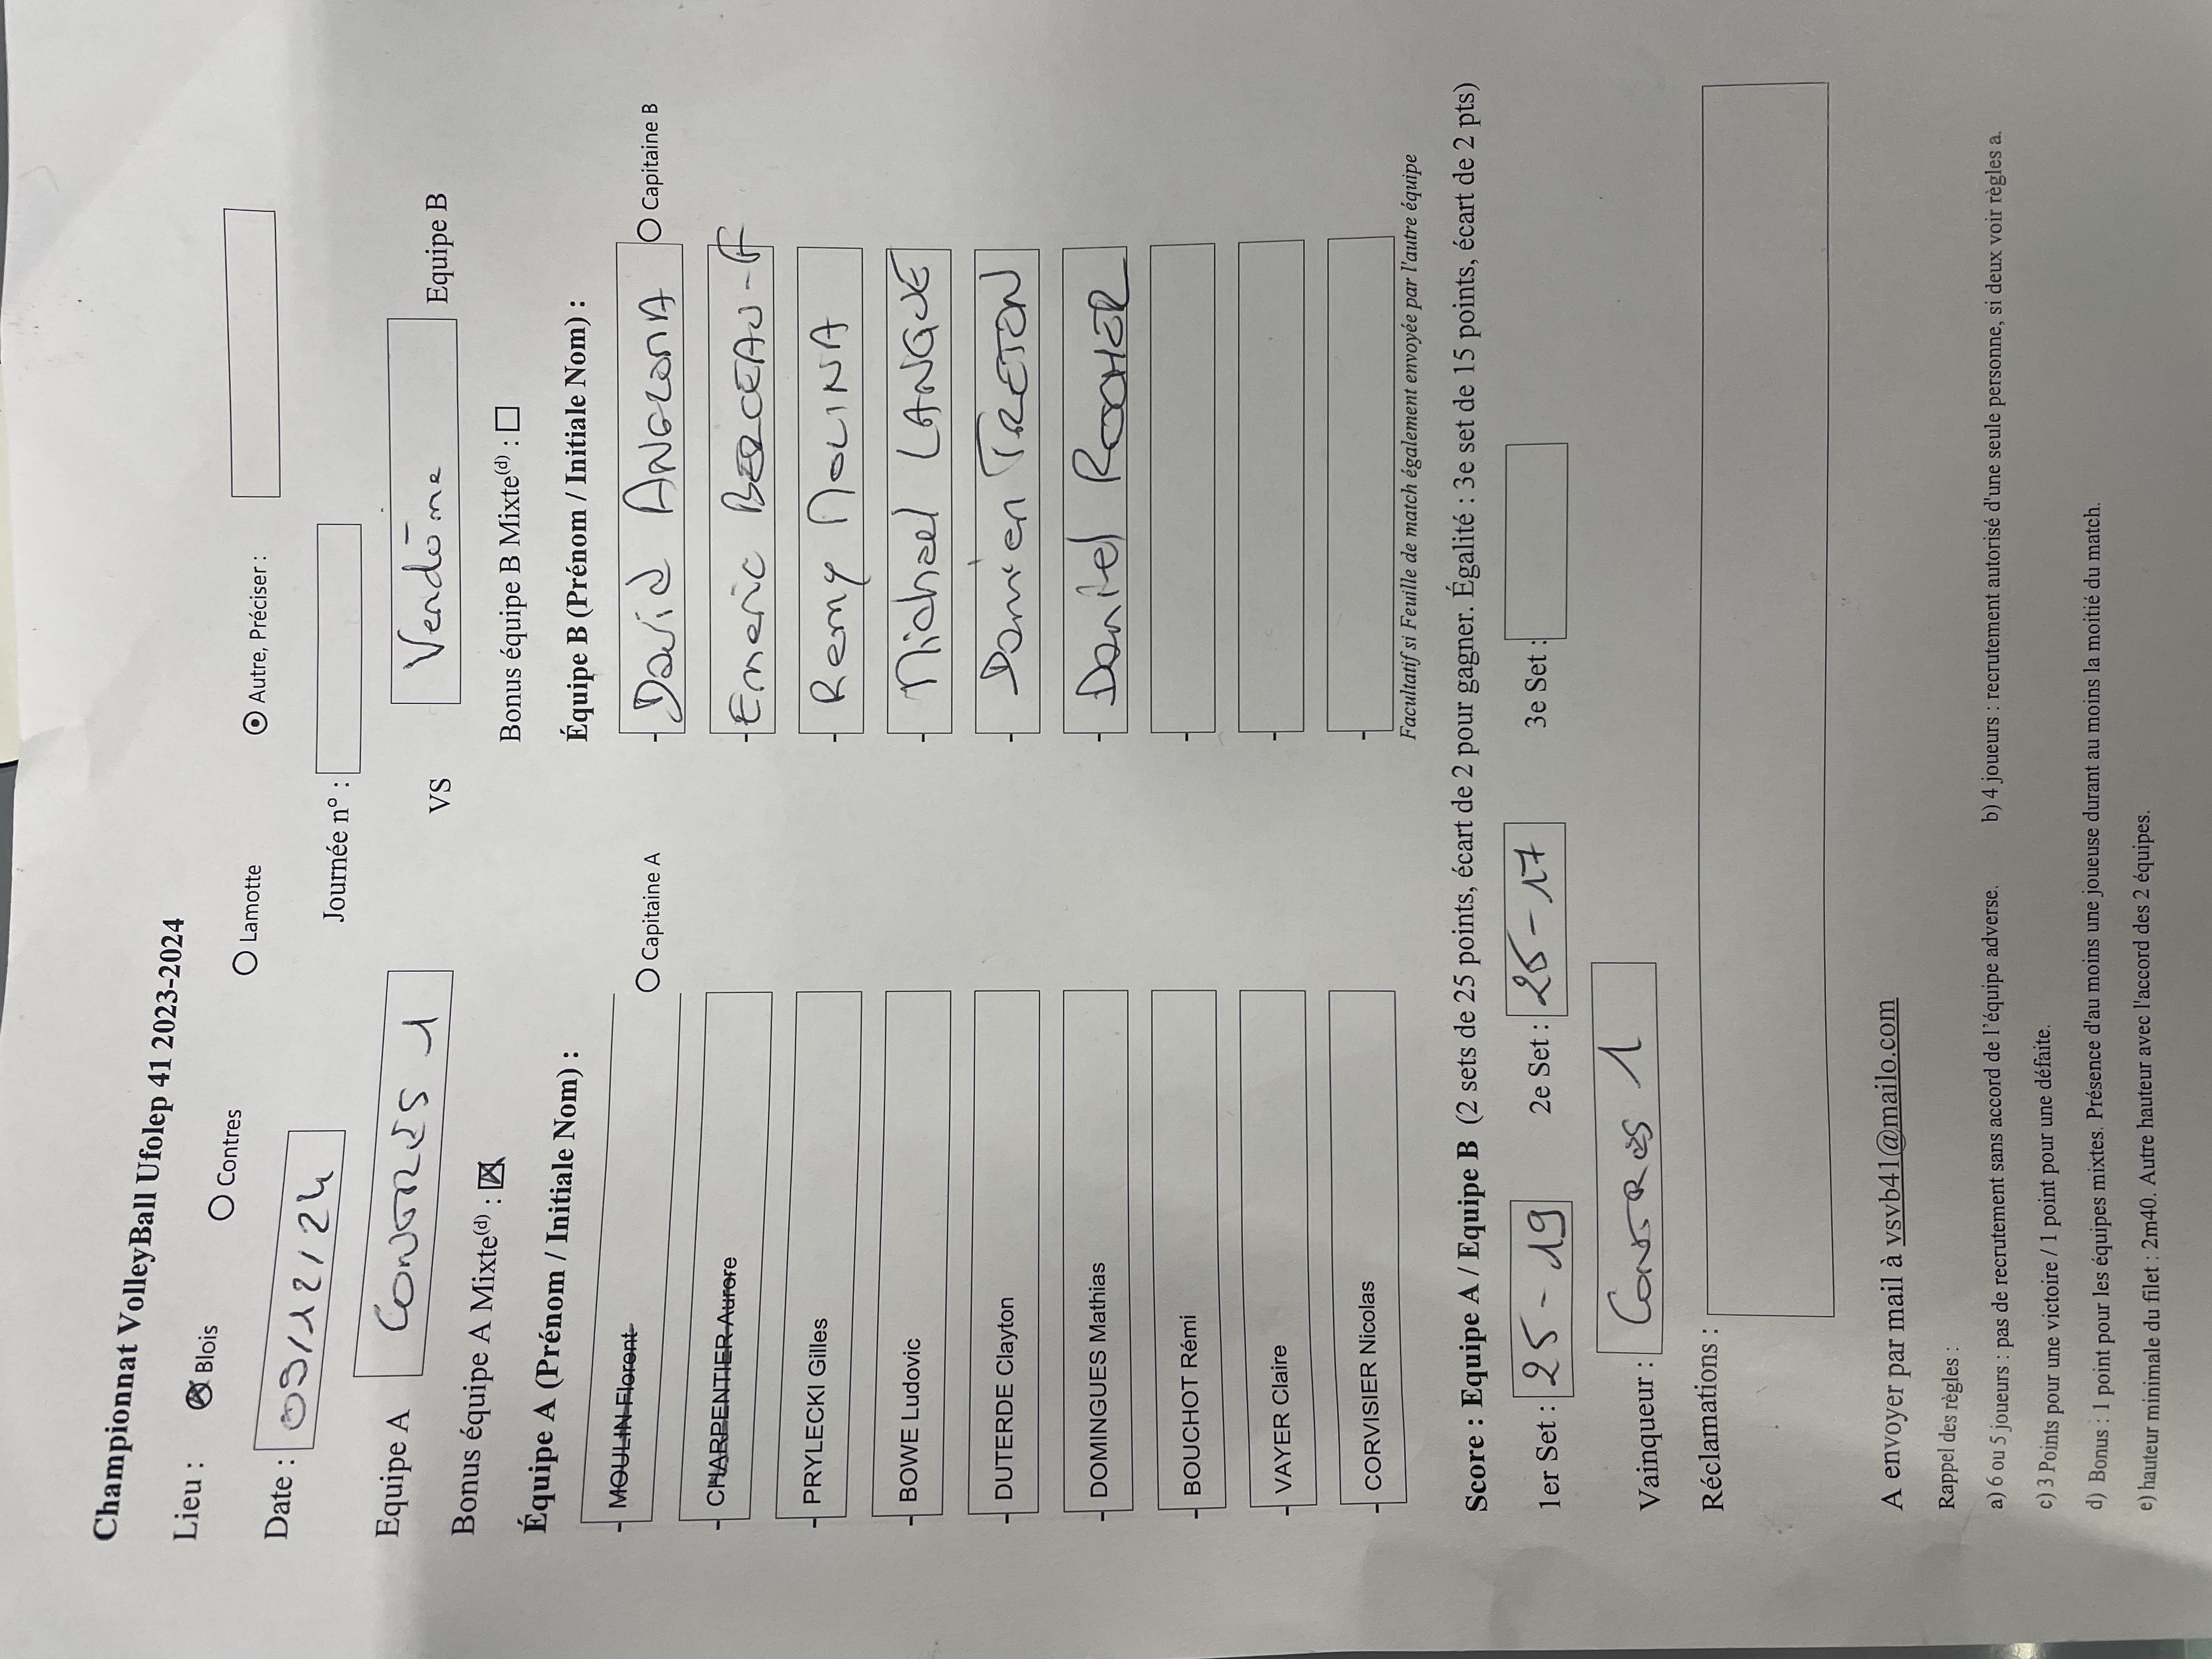 Championnat VolleyBall Ufolep 41 2023-2024
Lieu : Blois Contres Lamotte Autre, Préciser :
Date : 03/12/24 Journée n° :
Equipe A CONTRES 1 VS Vendôme Equipe B
Bonus équipe A Mixte(d) : Bonus équipe B Mixte(d) :
Équipe A (Prénom / Initiale Nom) : Équipe B (Prénom / Initiale Nom) :
- MOULIN Florent Capitaine A - David ANGLONA Capitaine B
- CHARPENTIER Aurore - Emeric
- PRYLECKI Gilles - Remy MOLINA
- BOWE Ludovic - Michael LANGUE
- DUTERDE Clayton - Damien TRETON
- DOMINGUES Mathias - Daniel
- BOUCHOT Rémi -
- VAYER Claire -
- CORVISIER Nicolas -
Facultatif si Feuille de match également envoyée par l'autre équipe
Score : Equipe A / Equipe B (2 sets de 25 points, écart de 2 pour gagner. Égalité : 3e set de 15 points, écart de 2 pts)
1er Set : 25-19 2e Set : 25-17 3e Set :
Vainqueur : CONTRES 1
Réclamations :
A envoyer par mail à vsvb41@mailo.com
Rappel des règles :
a) 6 ou 5 joueurs : pas de recrutement sans accord de l'équipe adverse. b) 4 joueurs : recrutement autorisé d'une seule personne, si deux voir règles a.
c) 3 Points pour une victoire / 1 point pour une défaite.
d) Bonus : 1 point pour les équipes mixtes. Présence d'au moins une joueuse durant au moins la moitié du match.
e) hauteur minimale du filet : 2m40. Autre hauteur avec l'accord des 2 équipes.